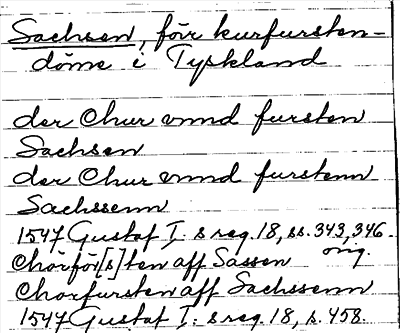 Sachsen, förr kurfursten-
döme i Tyskland
der Chur vnnd fursten
Sachsen
der Chur vnnd furstenn
Sachssenn
1547 Gustaf I:s reg. 18, ss. 343, 346.
orig.
Chörför[s]ten aff Sassen
Chorfursten aff Sachssenn
1547 Gustaf I:s reg. 18, s. 458.